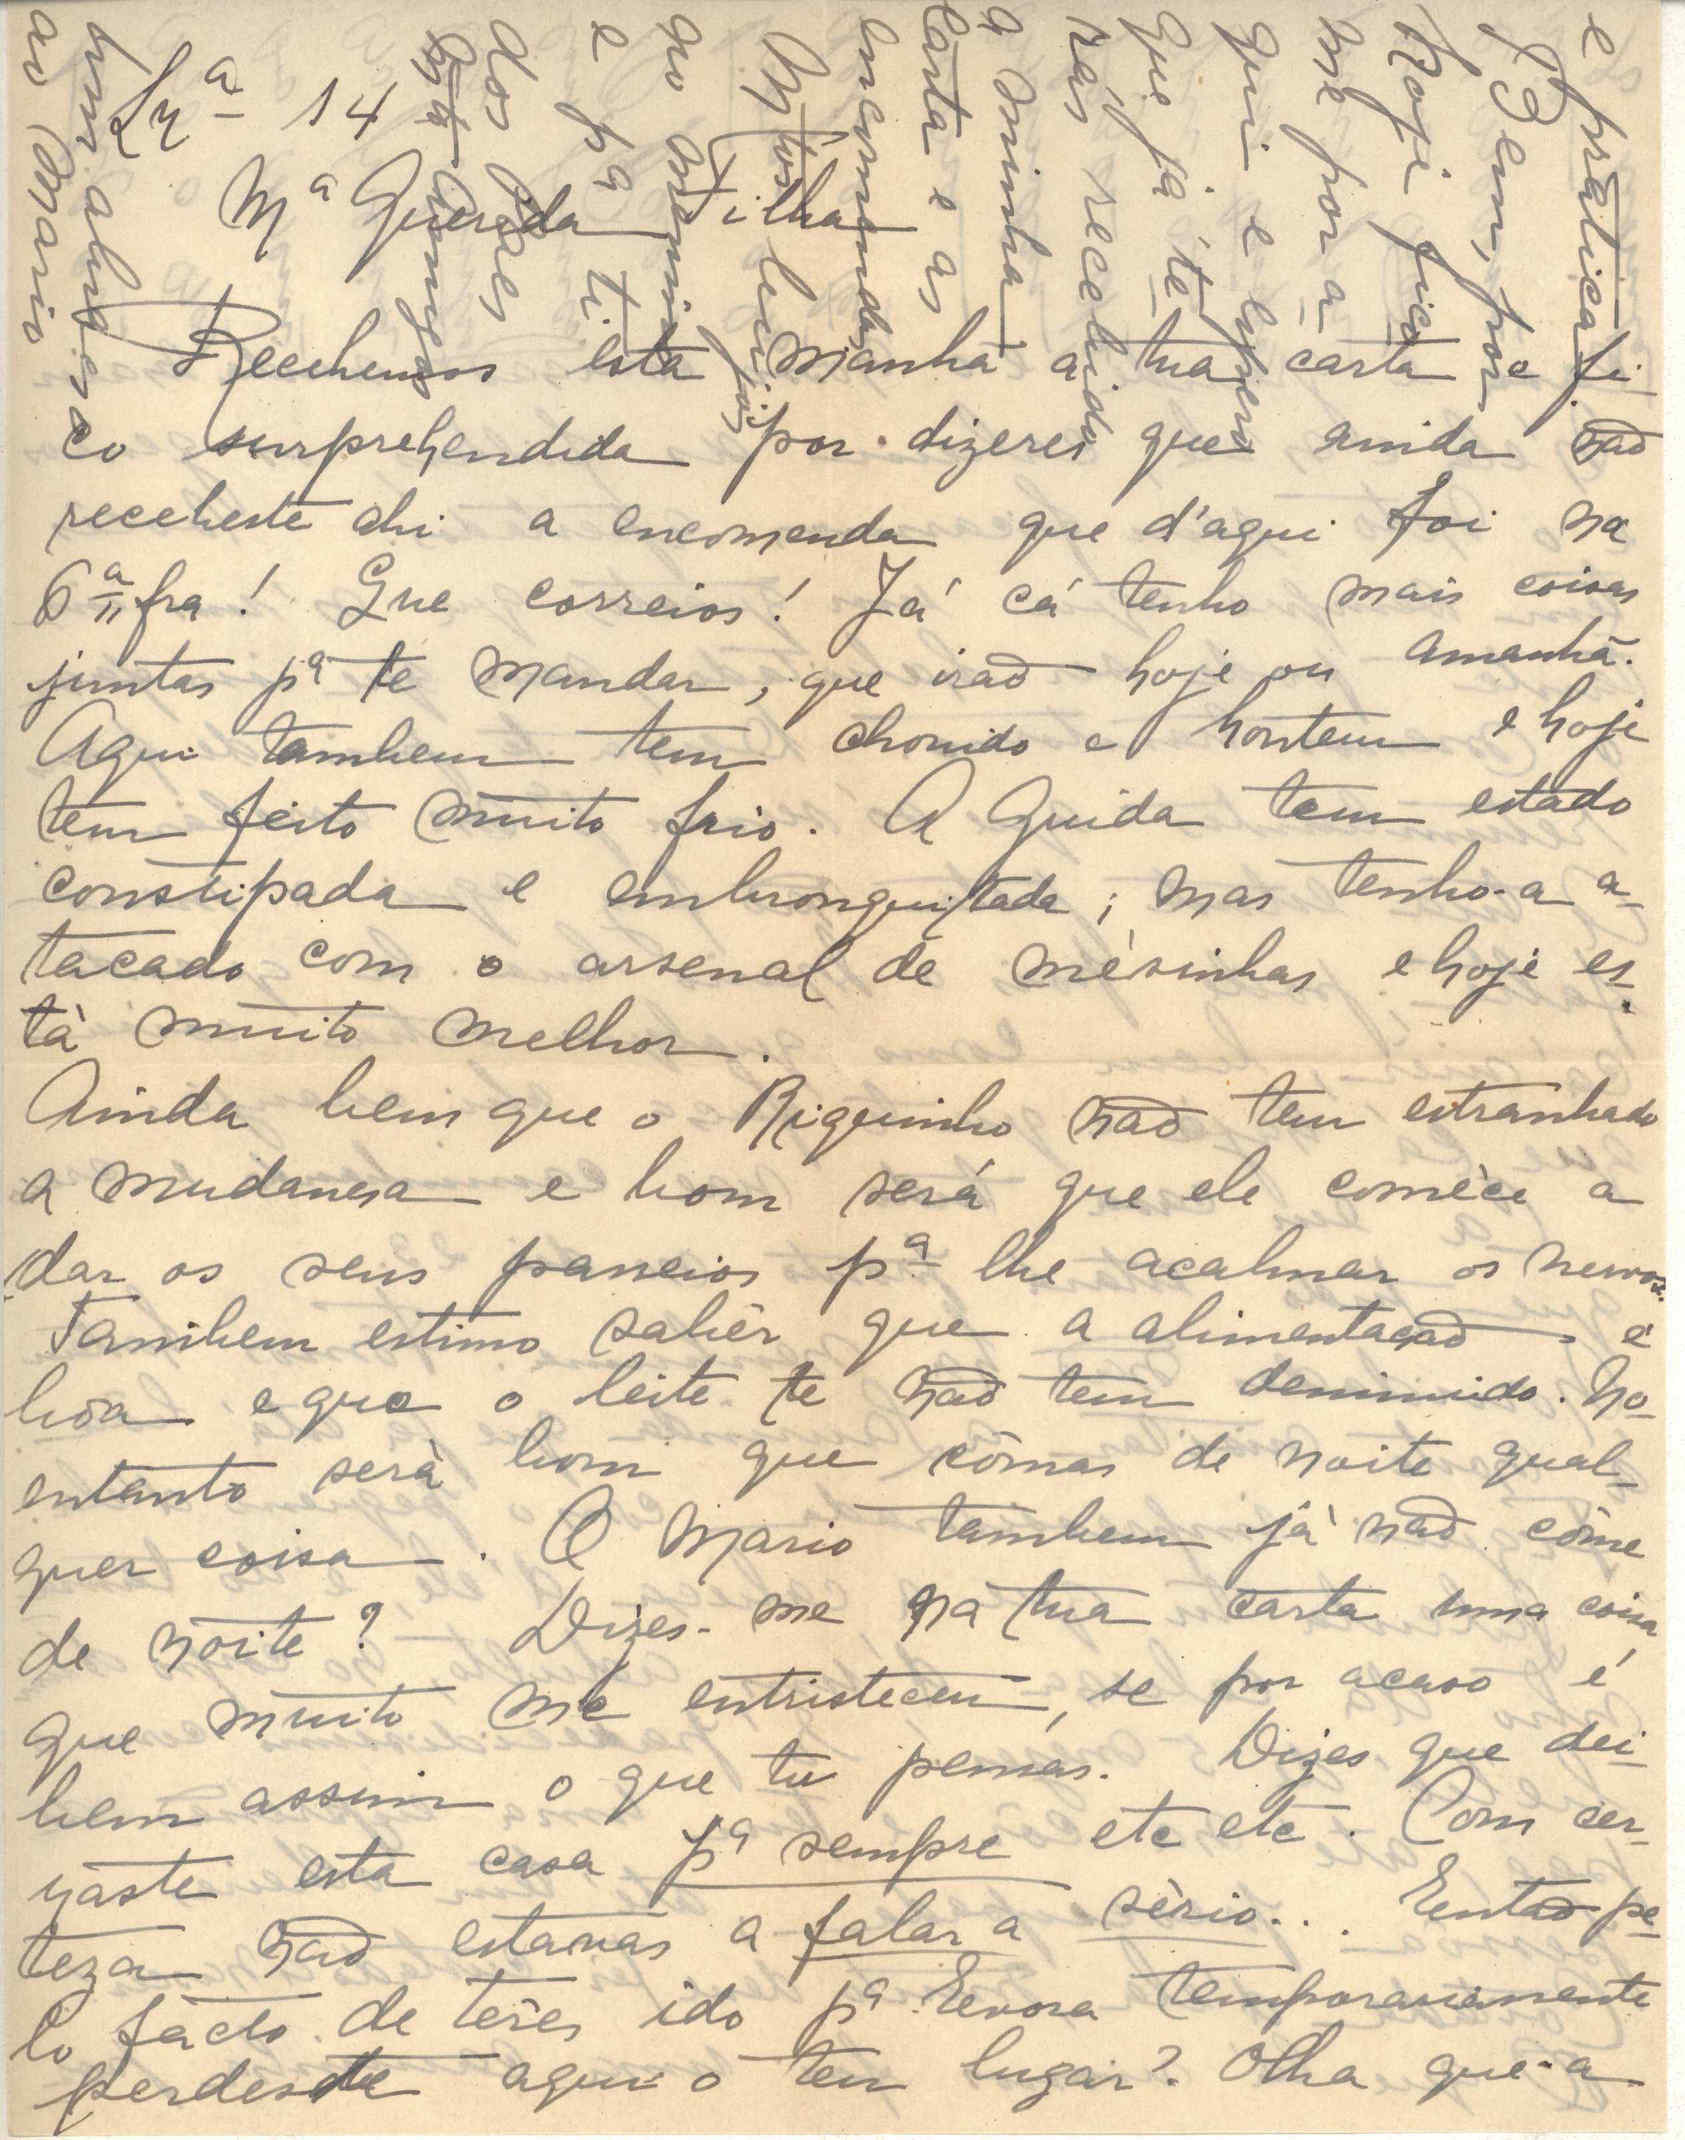 Lxª 14
Mª Querida Filha
Recebemos esta manhã a tua carta e fi-
co surprehendida por dizeres que ainda não
recebeste ahi a encomenda que d'aqui foi na
6ª fra! Que correios! Já cá tenho mais coisas
juntas pª te mandar, que irão hoje ou amanhã.
Aqui tambem tem chovido e hontem e hoje
tem feito muito frio. A Guida tem estado
constipada e embronquitada; mas tenho-a a-
tacado com o arsenal de mèsinhas e hoje es-
tà muito melhor.
Ainda bem que o Riquinho não tem estranhado
a mudança e bom será que ele comèce a
dar os seus passeios pª lhe acalmar os nervos.
Tambem estimo sabêr que a alimentação é
bôa e que o leite te não tem deminuido. No
entanto serà bom que cômas de noite qual-
quer coisa. O Mario tambem jà não côme
de noite? Dizes-me na tua carta uma coisa
que muito me entristeceu, se por acaso é
bem assim o que tu pensas. Dizes que dei-
xaste esta casa pª sempre etc etc. Com cer-
teza não estavas a falar a sèrio... Então pe-
lo facto de têres ido pª Evora temporariamente
perdeste aqui o teu lugar? Olha que a
e pratica
Bem, por
hoje fico
me por a-
qui e espero
que já te-
rás recebido
a minha
carta e as
encomendas
Mtos beijos
ao menino
e pª ti
dos Paes
hum abraço
ao Mario